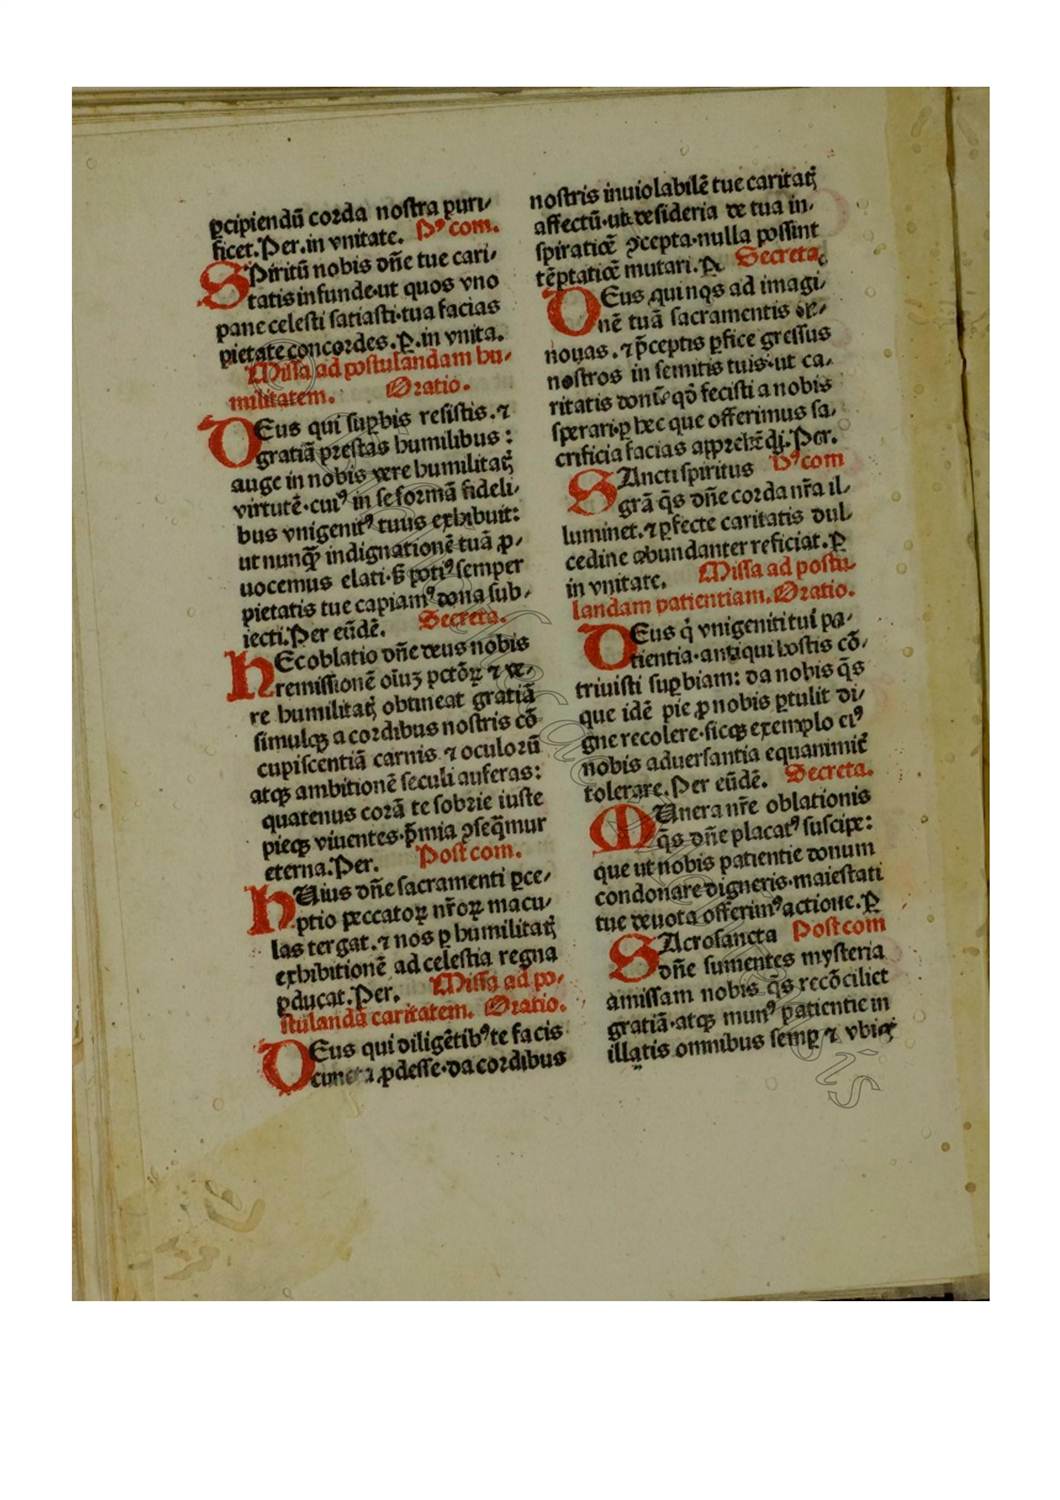 ꝑcipiendū corda nostra puri/
ficet. Per. in vnitate. Pꝰ com.
SPiritū nobis dn̄e tue cari/
tatis infunde·ut quos vno
pane celesti satiasti·tua facias
pietate concordes. P̲. in vnita.
Missa ad postulandam hu/
militatem. Oratio.
DEus qui suꝑbis resistis. ⁊
gratiā prestas humilibus:
auge in nobis vere humilitatꝭ
virtutē·cuiꝰ in se formā fideli/
bus vnigenitꝰ tuus exhibuit:
ut nunqꝫ̄ indignationē tuā ꝓ/
uocemus elati·sꝫ potiꝰ semper
pietatis tue capiamꝰ dona sub/
iecti. Per eūdē. Secreta.
hEc oblatio dn̄e deus nobis
remissionē oīuꝫ pctōꝝ ⁊ ve/
re humilitatꝭ obtineat gratiā
simulqꝫ a cordibus nostris cō
cupiscentiā carnis ⁊ oculorū
atqꝫ ambitionē seculi auferas:
quatenus corā te sobrie iuste
pieqꝫ viuentes·p̄mia ꝯseq̄mur
eterna. Per. Post com.
hUius dn̄e sacramenti ꝑce/
ptio peccatoꝝ nr̄oꝝ macu/
las tergat. ⁊ nos ꝑ humilitatꝭ
exhibitionē ad celestia regna
ꝑducat. Per. Missa ad po/
stulandā caritatem. Oratio.
DEus qui diligētibꝰ te facis
cuncta ꝓdesse·da cordibus
nostris inuiolabilē tue caritatꝭ
affectū·ut desideria de tua in/
spiratiōe ꝯcepta·nulla possint
tēptatiōe mutari. P̲ Secreta.
DEus qui nos ad imagi/
nē tuā sacramentis re/
nouas. ⁊ p̄ceptis ꝑfice gressus
nostros in semitis tuis·ut ca/
ritatis donū qd̄ fecisti a nobis
sperari·ꝑ hec que offerimus sa/
crificia facias apprehēdi. Per.
SAncti spiritus Pꝰ com
grā q̄s dn̄e corda nr̄a il/
luminet. ⁊ ꝑfecte caritatis dul/
cedine abundanter reficiat. P̲
in vnitate. Missa ad postu/
landam patientiam. Oratio.
DEus q̇ vnigeniti tui pa/
tientia·antiqui hostis cō/
triuisti suꝑbiam: da nobis q̄s
que idē pie ꝓ nobis ꝑtulit di/
gne recolere·sicqꝫ exemplo eiꝰ
nobis aduersantia equanimiť
tolerare. Per eūdē. Secreta.
MUnera nr̄e oblationis
q̄s dn̄e placatꝰ suscipe:
que ut nobis patientie donum
condonare digneris·maiestati
tue deuota offerimꝰ actione. P̲
SAcrosancta Postcom
dn̄e sumentes mysteria
amissam nobis q̄s recōciliet
gratiā·atqꝫ munꝰ patientie in
illatis omnibus semꝑ ⁊ vbiqꝫ